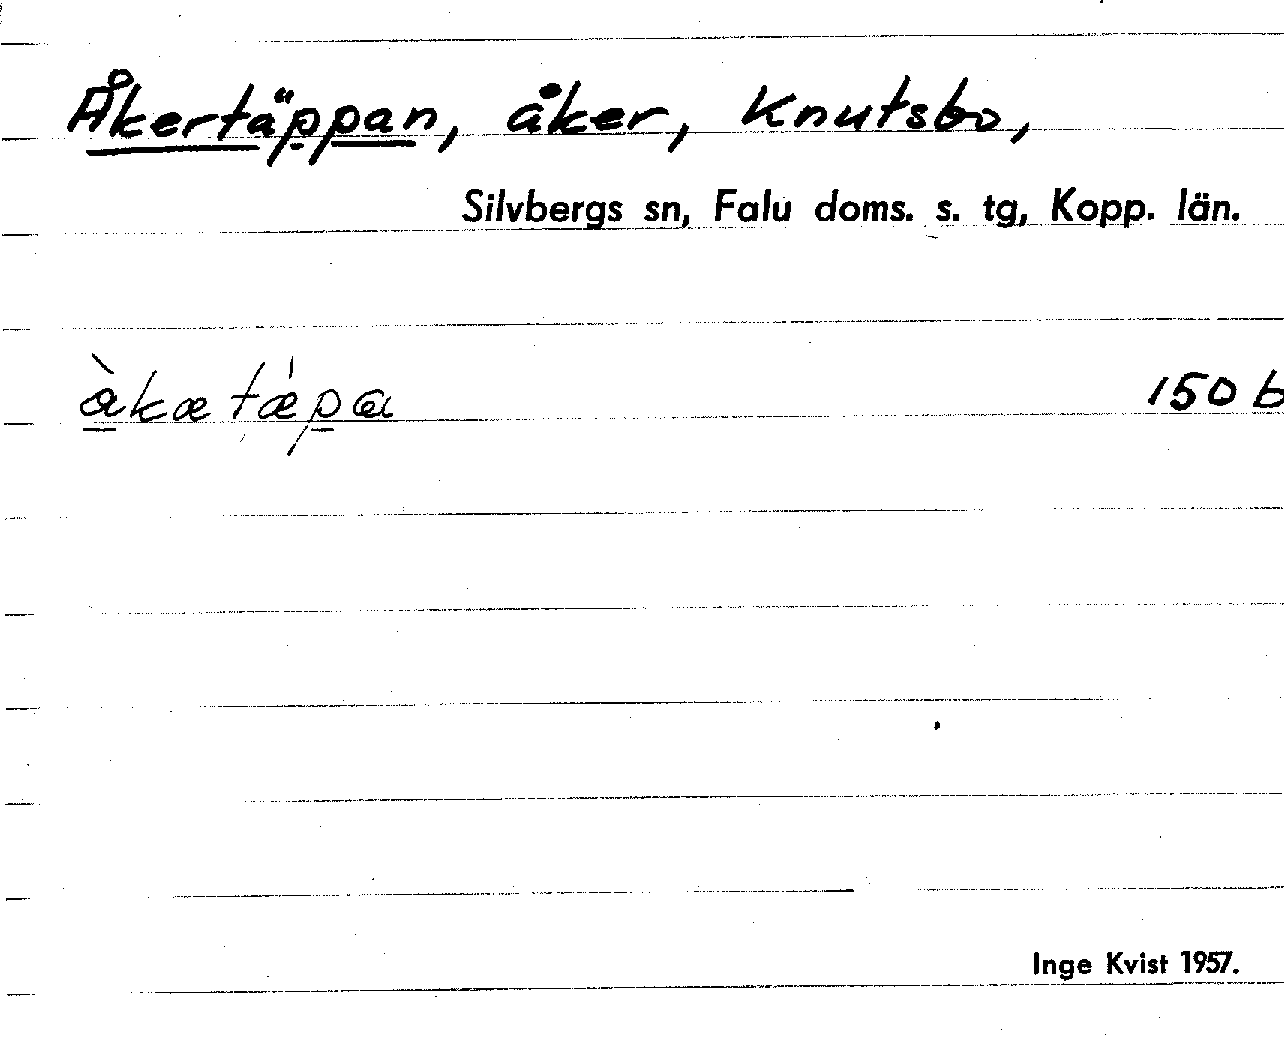 Åkertäppan, åker, Knutsbo,
Silvbergs sn, Falu doms. s. tg, Kopp. län.
150 b
Inge Kvist 1957.